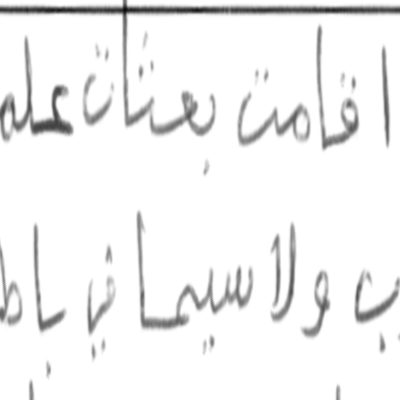 اقامت بعثات علم
ب ولا سيما في باط